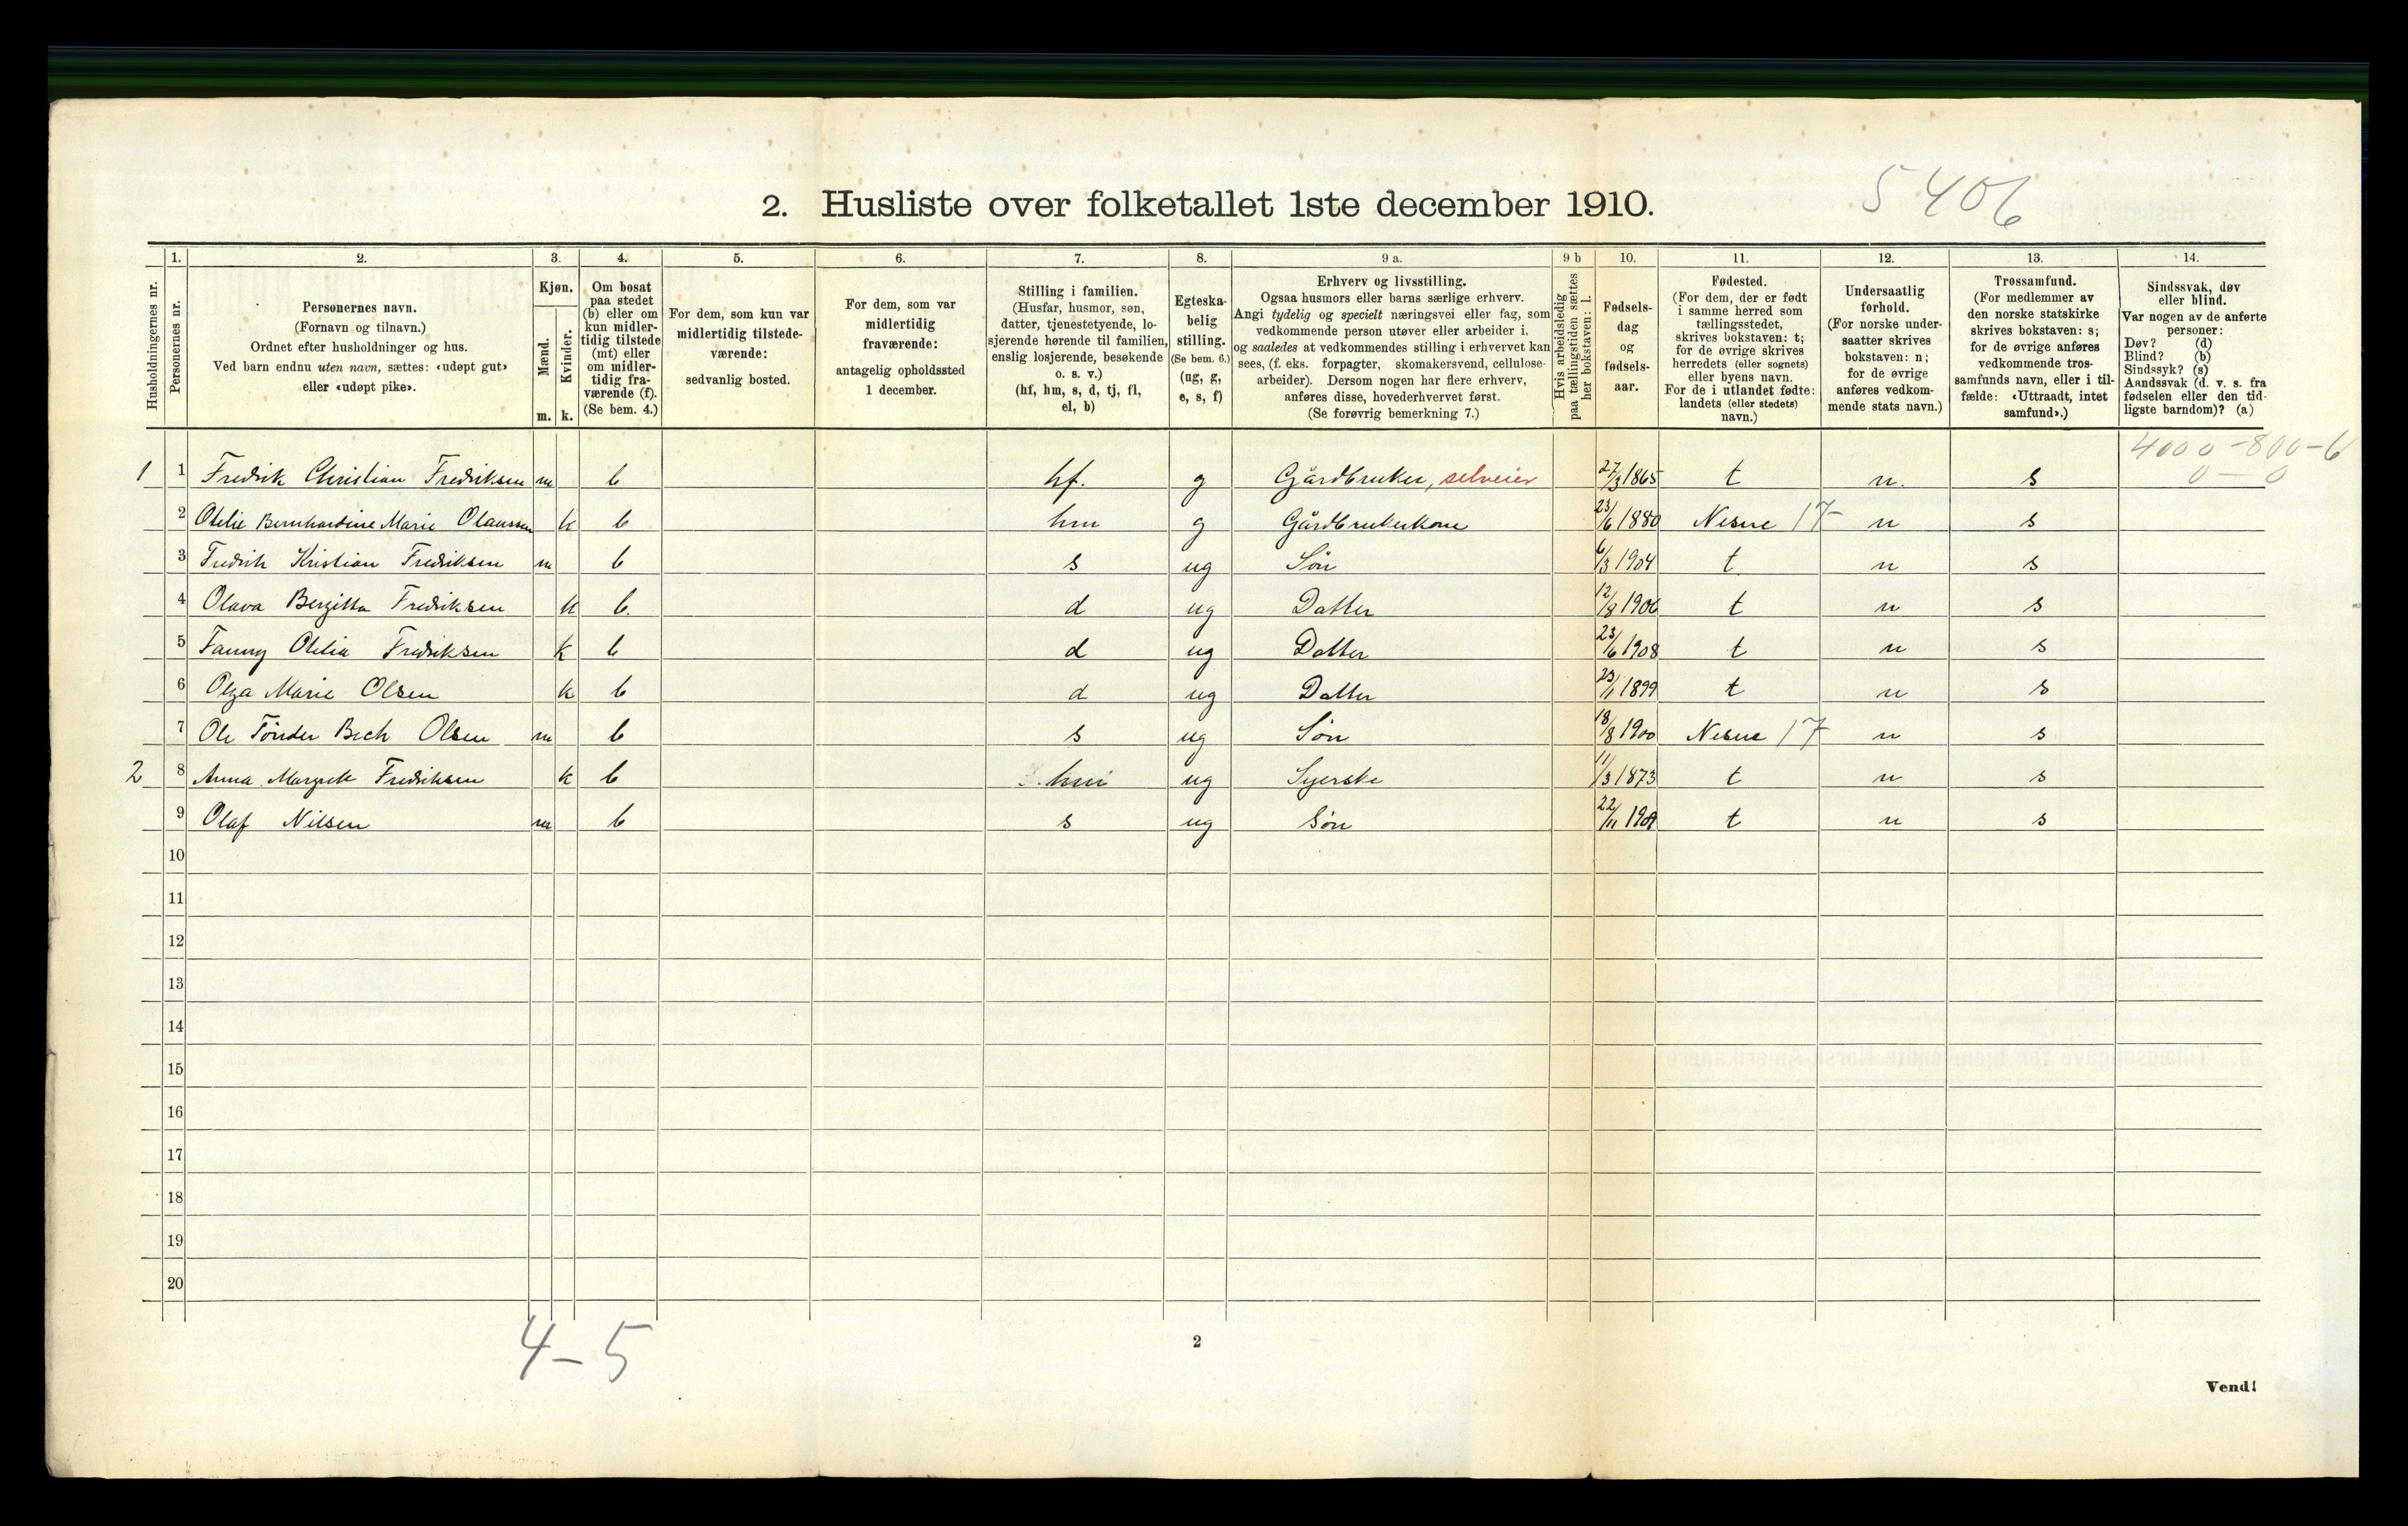 5406
2. Husliste over folketallet 1ste december 1910.
Husholdningernes nr.
1.
Personernes nr.
2.
Personernes navn.
(Fornavn og tilnavn.)
Ordnet efter husholdninger og hus.
Ved barn endnu uten navn, sættes: «udøpt gut»
eller «udøpt pike».
3.
Kjøn.
Mænd.
Kvinder.
m. k.
4.
Om bosat
paa stedet
(b) eller om
kun midler-
tidig tilstede
(mt) eller
om midler-
tidig fra-
værende (f).
(Se bem. 4.)
5.
For dem, som kun var
midlertidig tilstede-
værende:
sedvanlig bosted.
6.
For dem, som var
midlertidig
fraværende:
antagelig opholdssted
1 december.
7.
Stilling i familien.
(Husfar, husmor, søn,
datter, tjenestetyende, lo-
sjerende hørende til familien,
enslig losjerende, besøkende
o. s. v.)
(hf, hm, s, d, tj, fl,
el, b)
8.
Egteska-
belig
stilling.
(Se bem. 6.)
(ug, g,
e, s, f)
9 a.
Erhverv og livsstilling.
Ogsaa husmors eller barns særlige erhverv.
Angi tydelig og specielt næringsvei eller fag, som
vedkommende person utøver eller arbeider i,
og saaledes at vedkommendes stilling i erhvervet kan
sees, (f. eks. forpagter, skomakersvend, cellulose-
arbeider). Dersom nogen har flere erhverv,
anføres disse, hovederhvervet først.
(Se forøvrig bemerkning 7.)
9 b
Hvis arbeidsledig
paa tællingstiden sættes
her bokstaven: l.
10.
Fødsels-
dag
og
fødsels-
aar.
11.
Fødested.
(For dem, der er født
i samme herred som
tællingsstedet,
skrives bokstaven: t;
for de øvrige skrives
herredets (eller sognets)
eller byens navn.
For de i utlandet fødte:
landets (eller stedets)
navn.)
12.
Undersaatlig
forhold.
(For norske under-
saatter skrives
bokstaven: n;
for de øvrige
anføres vedkom-
mende stats navn.)
13.
Trossamfund.
(For medlemmer av
den norske statskirke
skrives bokstaven: s;
for de øvrige anføres
vedkommende tros-
samfunds navn, eller i til-
fælde: «Uttraadt, intet
samfund».)
14.
Sindssvak, døv
eller blind.
Var nogen av de anførte
personer:
Døv? (d)
Blind? (b)
Sindssyk? (s)
Aandssvak (d. v. s. fra
fødselen eller den tid-
ligste barndom)? (a)
4000-800-6
0-0
1 1 Fredrik Christian Fredriksen m b hf. g Gårdbruker, selveier 27/3 1865 t n. s
2 Otelie Bernhardine Marie Olaussen k b hm g Gårdbrukerkone 23/6 1880 Nesne 17 n s
3 Fredrik Kristian Fredriksen m b s ug Søn 6/3 1904 t n s
4 Olava Bergitta Fredriksen k b. d ug Datter 12/8 1906 t n s
5 Fanny Otelia Fredriksen k b d ug Datter 23/6 1908 t n s
6 Olga Marie Olsen k b d ug Datter 23/1 1899 t n s
7 Ole Tønder Bech Olsen m b s ug Søn 18/8 1900 Nesne 17 n s
2 8 Anna Margrete Fredriksen k b hm ug Syerske 11/3 1873 t n s
9 Olaf Nilsen m b s ug Søn 22/11 t n s
10
11
12
13
14
15
16
17
18
19
20
4-5
2
Vend!